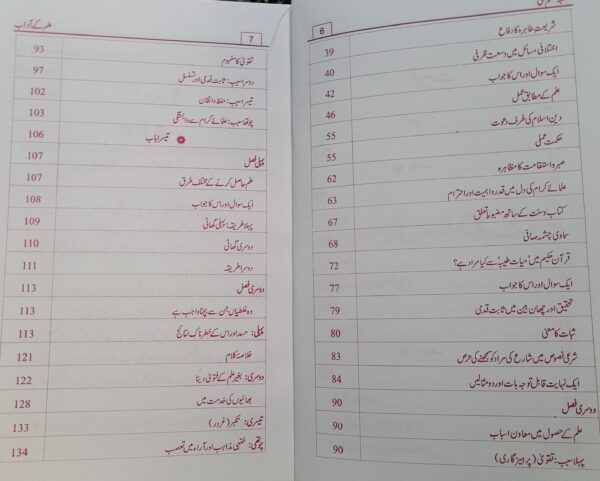 6
شریعت طاہرہ کا دفاع 39
اختلافی مسائل میں وسعت ظرفی 40
ایک سوال اور اس کا جواب 42
علم کے مطابق عمل 46
دین اسلام کی طرف دعوت 55
حکمت عملی 55
صبر و استقامت کا مظاہرہ 62
علمائے کرام کی دل میں قدر و اہمیت اور احترام 63
کتاب و سنت کے ساتھ مضبوط تعلق 67
سماوی چشمہ صافی 68
قرآن حکیم میں 'حیات طیبہ' سے کیا مراد ہے؟ 72
ایک سوال اور اس کا جواب 77
تحقیق اور چھان بین میں ثابت قدمی 79
ثبات کا معنی 80
شرعی نصوص میں شارع کی مراد کو سمجھنے کی حرص 83
ایک نہایت قابل توجہ بات اور دو مثالیں 84
دوسری فصل 90
علم کے حصول میں معاون اسباب 90
پہلا سبب: تقویٰ (پرہیزگاری) 90
علم کے آداب
7
تقویٰ کا مفہوم 93
دوسرا سبب: ثابت قدمی اور تسلسل 97
تیسرا سبب: حفظ و اتقان 102
چوتھا سبب: علمائے کرام سے وابستگی 103
تیسرا باب 106
پہلی فصل 107
علم حاصل کرنے کے مختلف طرق 107
ایک سوال اور اس کا جواب 108
پہلا طریقہ: پہلی گھاٹی 109
دوسری گھاٹی 110
دوسرا طریقہ 111
دوسری فصل 113
وہ غلطیاں جن سے بچنا واجب ہے 113
پہلی: حسد اور اس کے خطرناک نتائج 113
خلاصۂ کلام 121
دوسری: بغیر علم کے فتویٰ دینا 122
بھائیوں کی خدمت میں 128
تیسری: تکبر (غرور) 133
چوتھی: فقہی مذاہب اور آراء میں تعصب 134